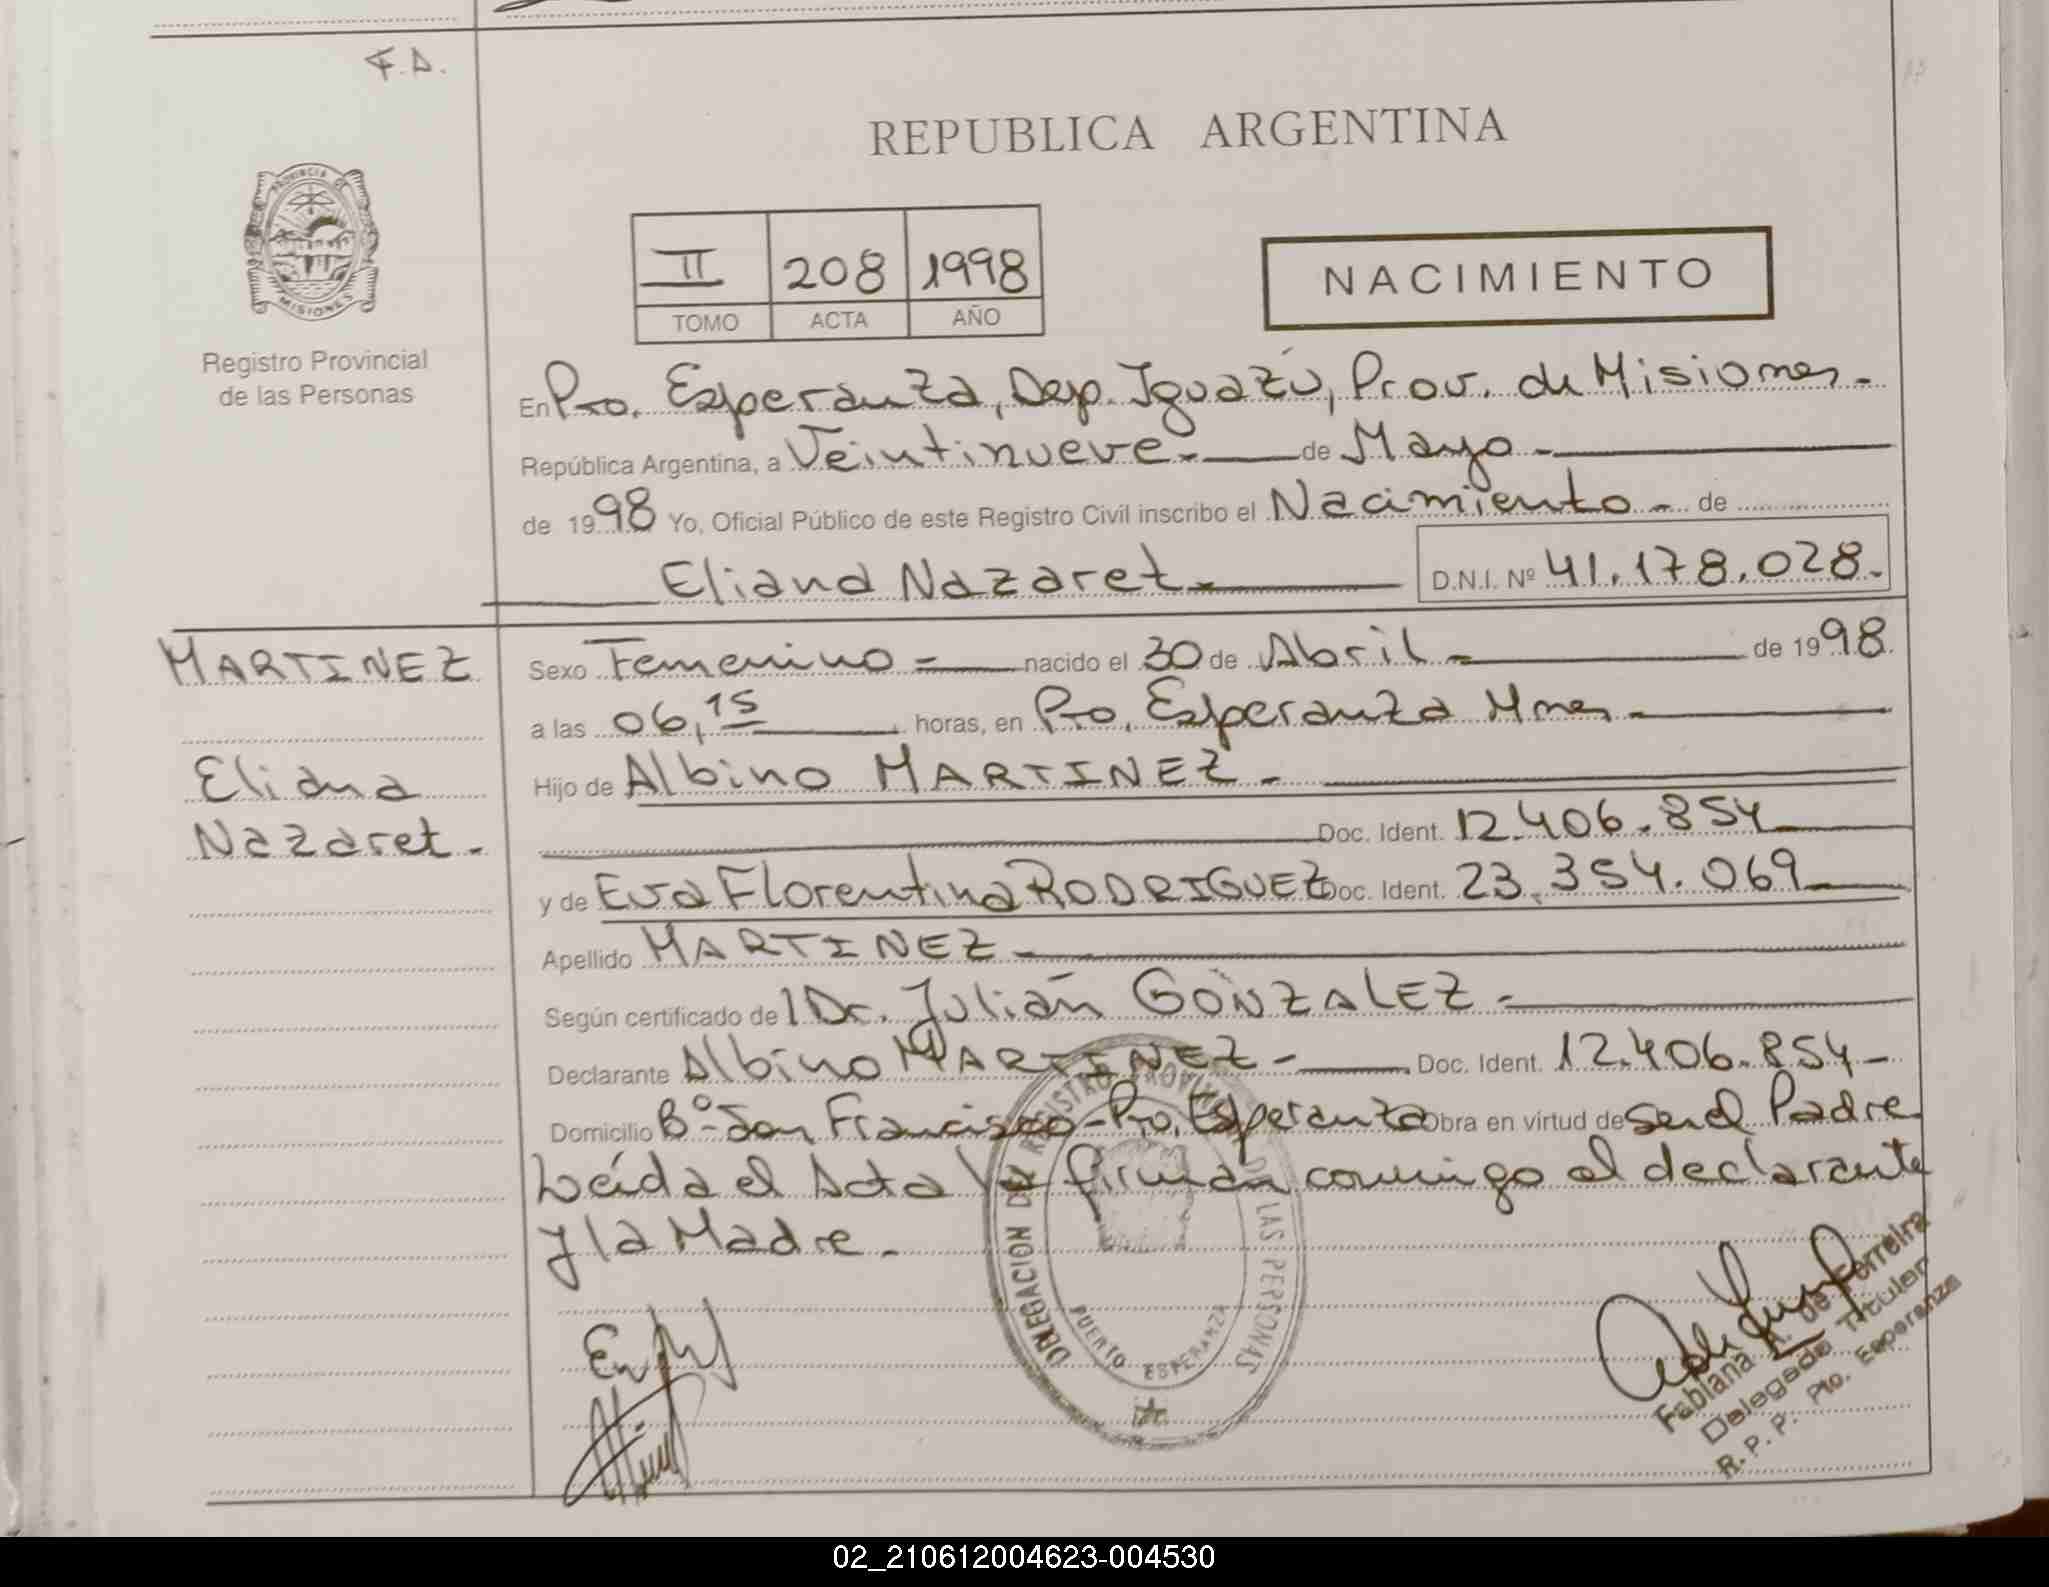 F.D.
REPUBLICA ARGENTINA
PROVINCIA DE
MISIONES
II 208 1998
TOMO ACTA AÑO
NACIMIENTO
Registro Provincial
de las Personas
En Pto. Esperanza, Dep. Iguazú, Prov. de Misiones.-
República Argentina, a Veintinueve.- de Mayo.-
de 1998 Yo, Oficial Público de este Registro Civil inscribo el Nacimiento.- de
Eliana Nazaret.- D.N.I. Nº 41.178.028.
MARTINEZ
Eliana
Nazaret.-
Sexo Femenino = nacido el 30 de Abril.- de 1998.
a las 06,15 horas, en Pto. Esperanza Mnes.-
Hijo de Albino MARTINEZ.-
Doc. Ident. 12.406.854
y de Eva Florentina RODRIGUEZ Doc. Ident. 23.354.069
Apellido MARTINEZ.-
Según certificado de l Dr. Julián GONZALEZ.-
Declarante Albino MARTINEZ.- Doc. Ident. 12.406.854-
Domicilio Bº San Francisco-Pto. Esperanza Obra en virtud de ser el Padre
Leída el Acta la firman conmigo el declarante
y la Madre.-
DELEGACION DEL REGISTRO PROVINCIAL DE LAS PERSONAS
PUERTO ESPERANZA
Fabiana A. de Ferreira
Delegada Titular
R. P. P. Pto. Esperanza
02_210612004623-004530